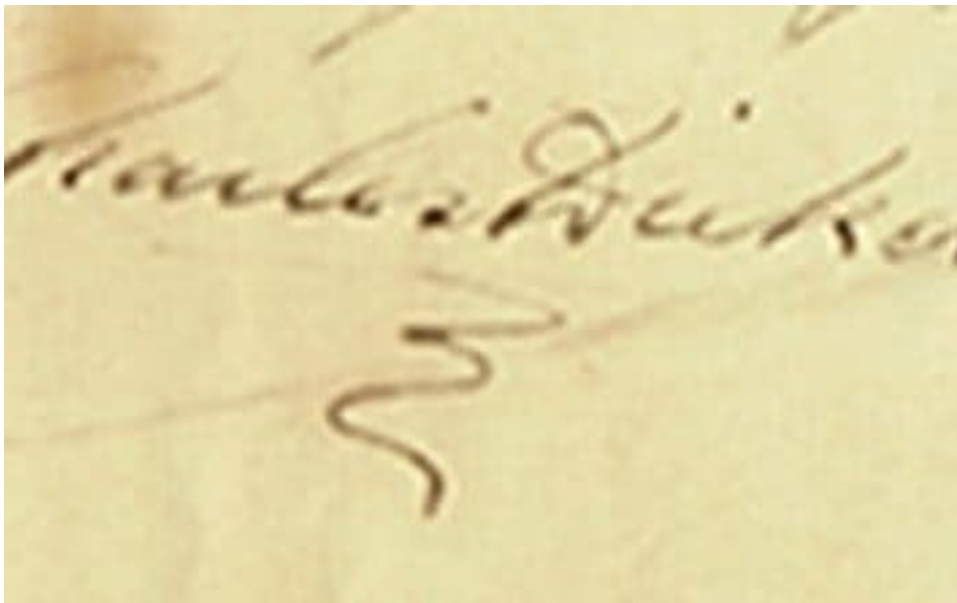 Charles Dicke